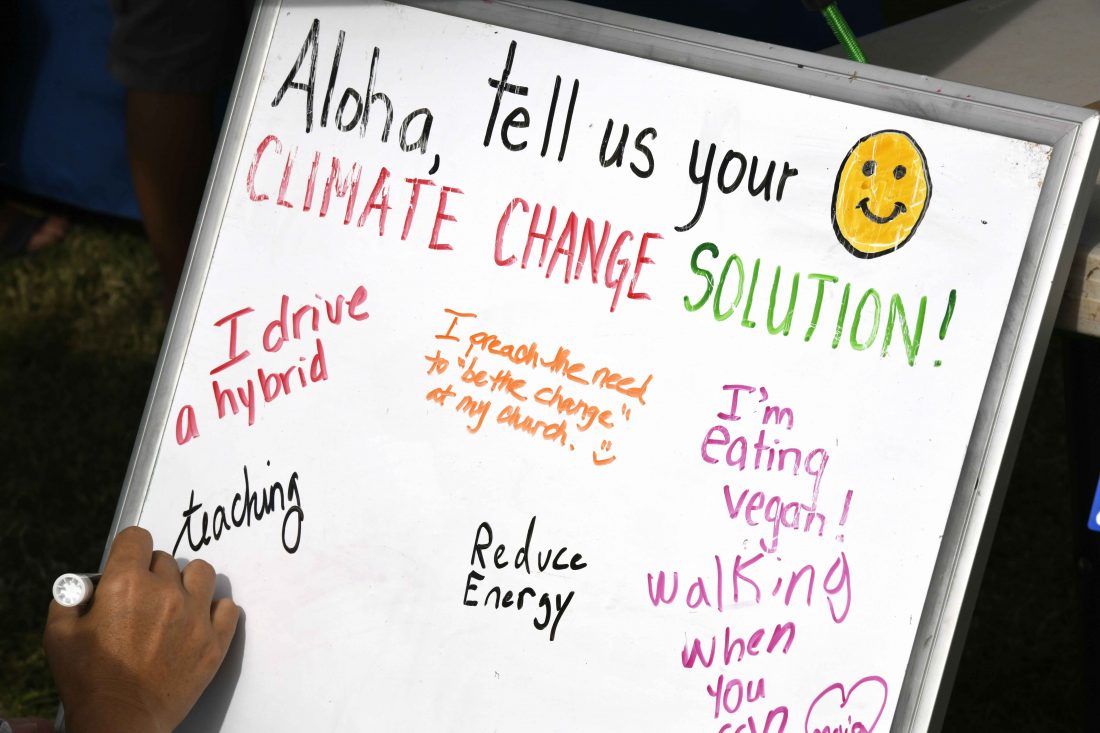 Aloha, tell us your
CLIMATE CHANGE SOLUTION!
I drive
a hybrid
I preach the need
to "be the change"
at my church.
I'm
eating
vegan!
teaching
Reduce
Energy
walking
when
you
can